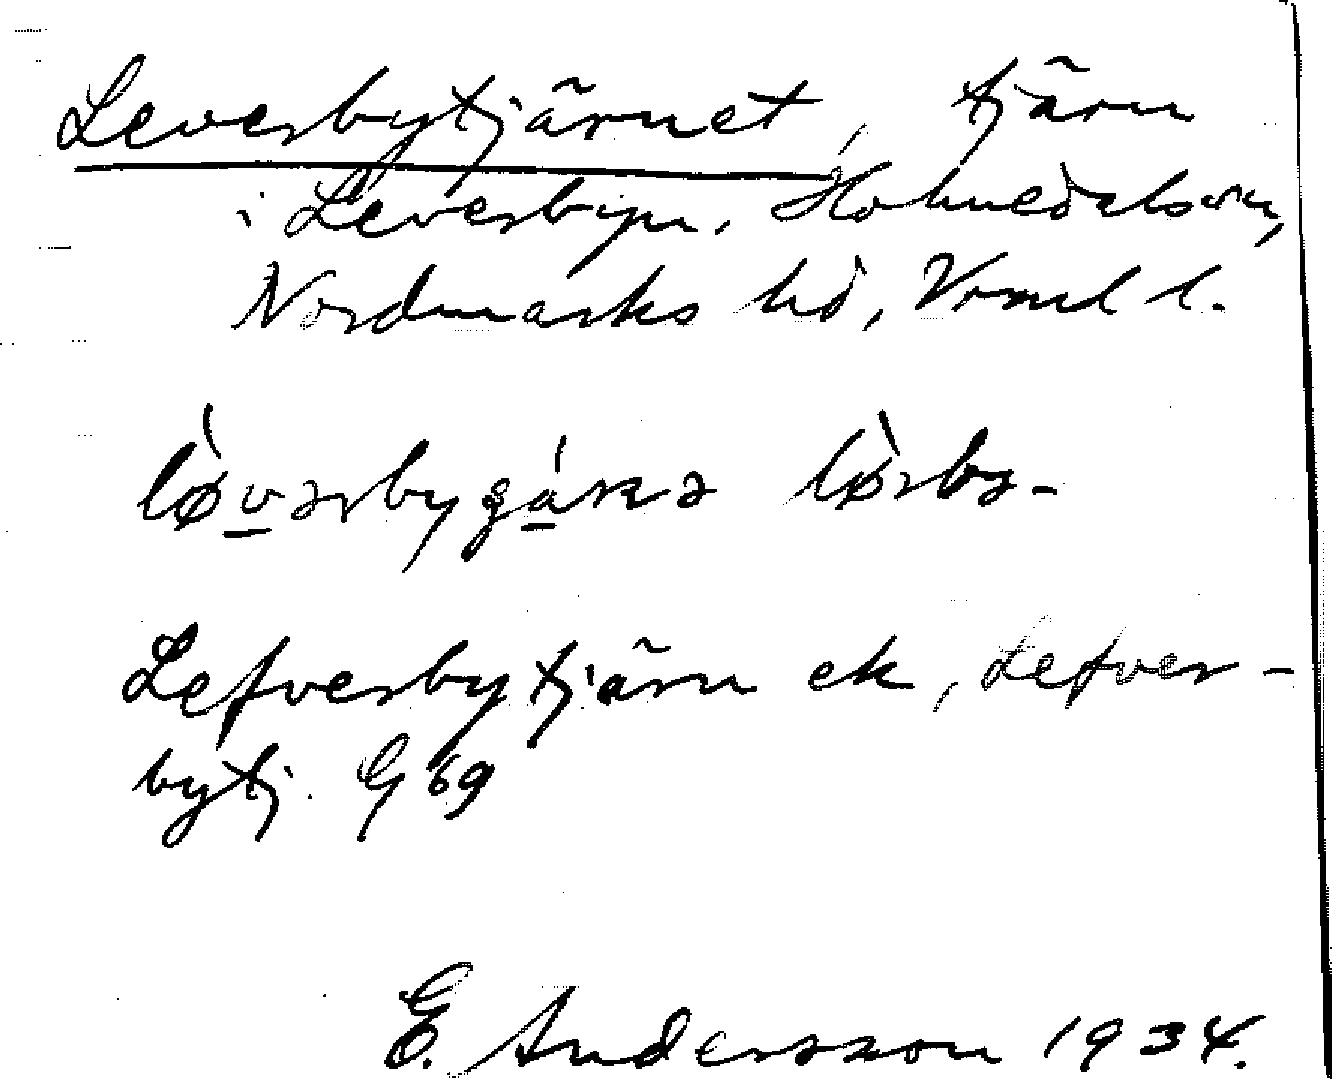 Leverbytjärnet, tjärn
i Leverbyn, Holmedals sn,
Nordmarks hd, Vrml l.
lø̀vərbyɡánə lø̀rbə-
Lefverbytjärn ek, Lefver-
bytj. G 69
E. Andersson 1934.